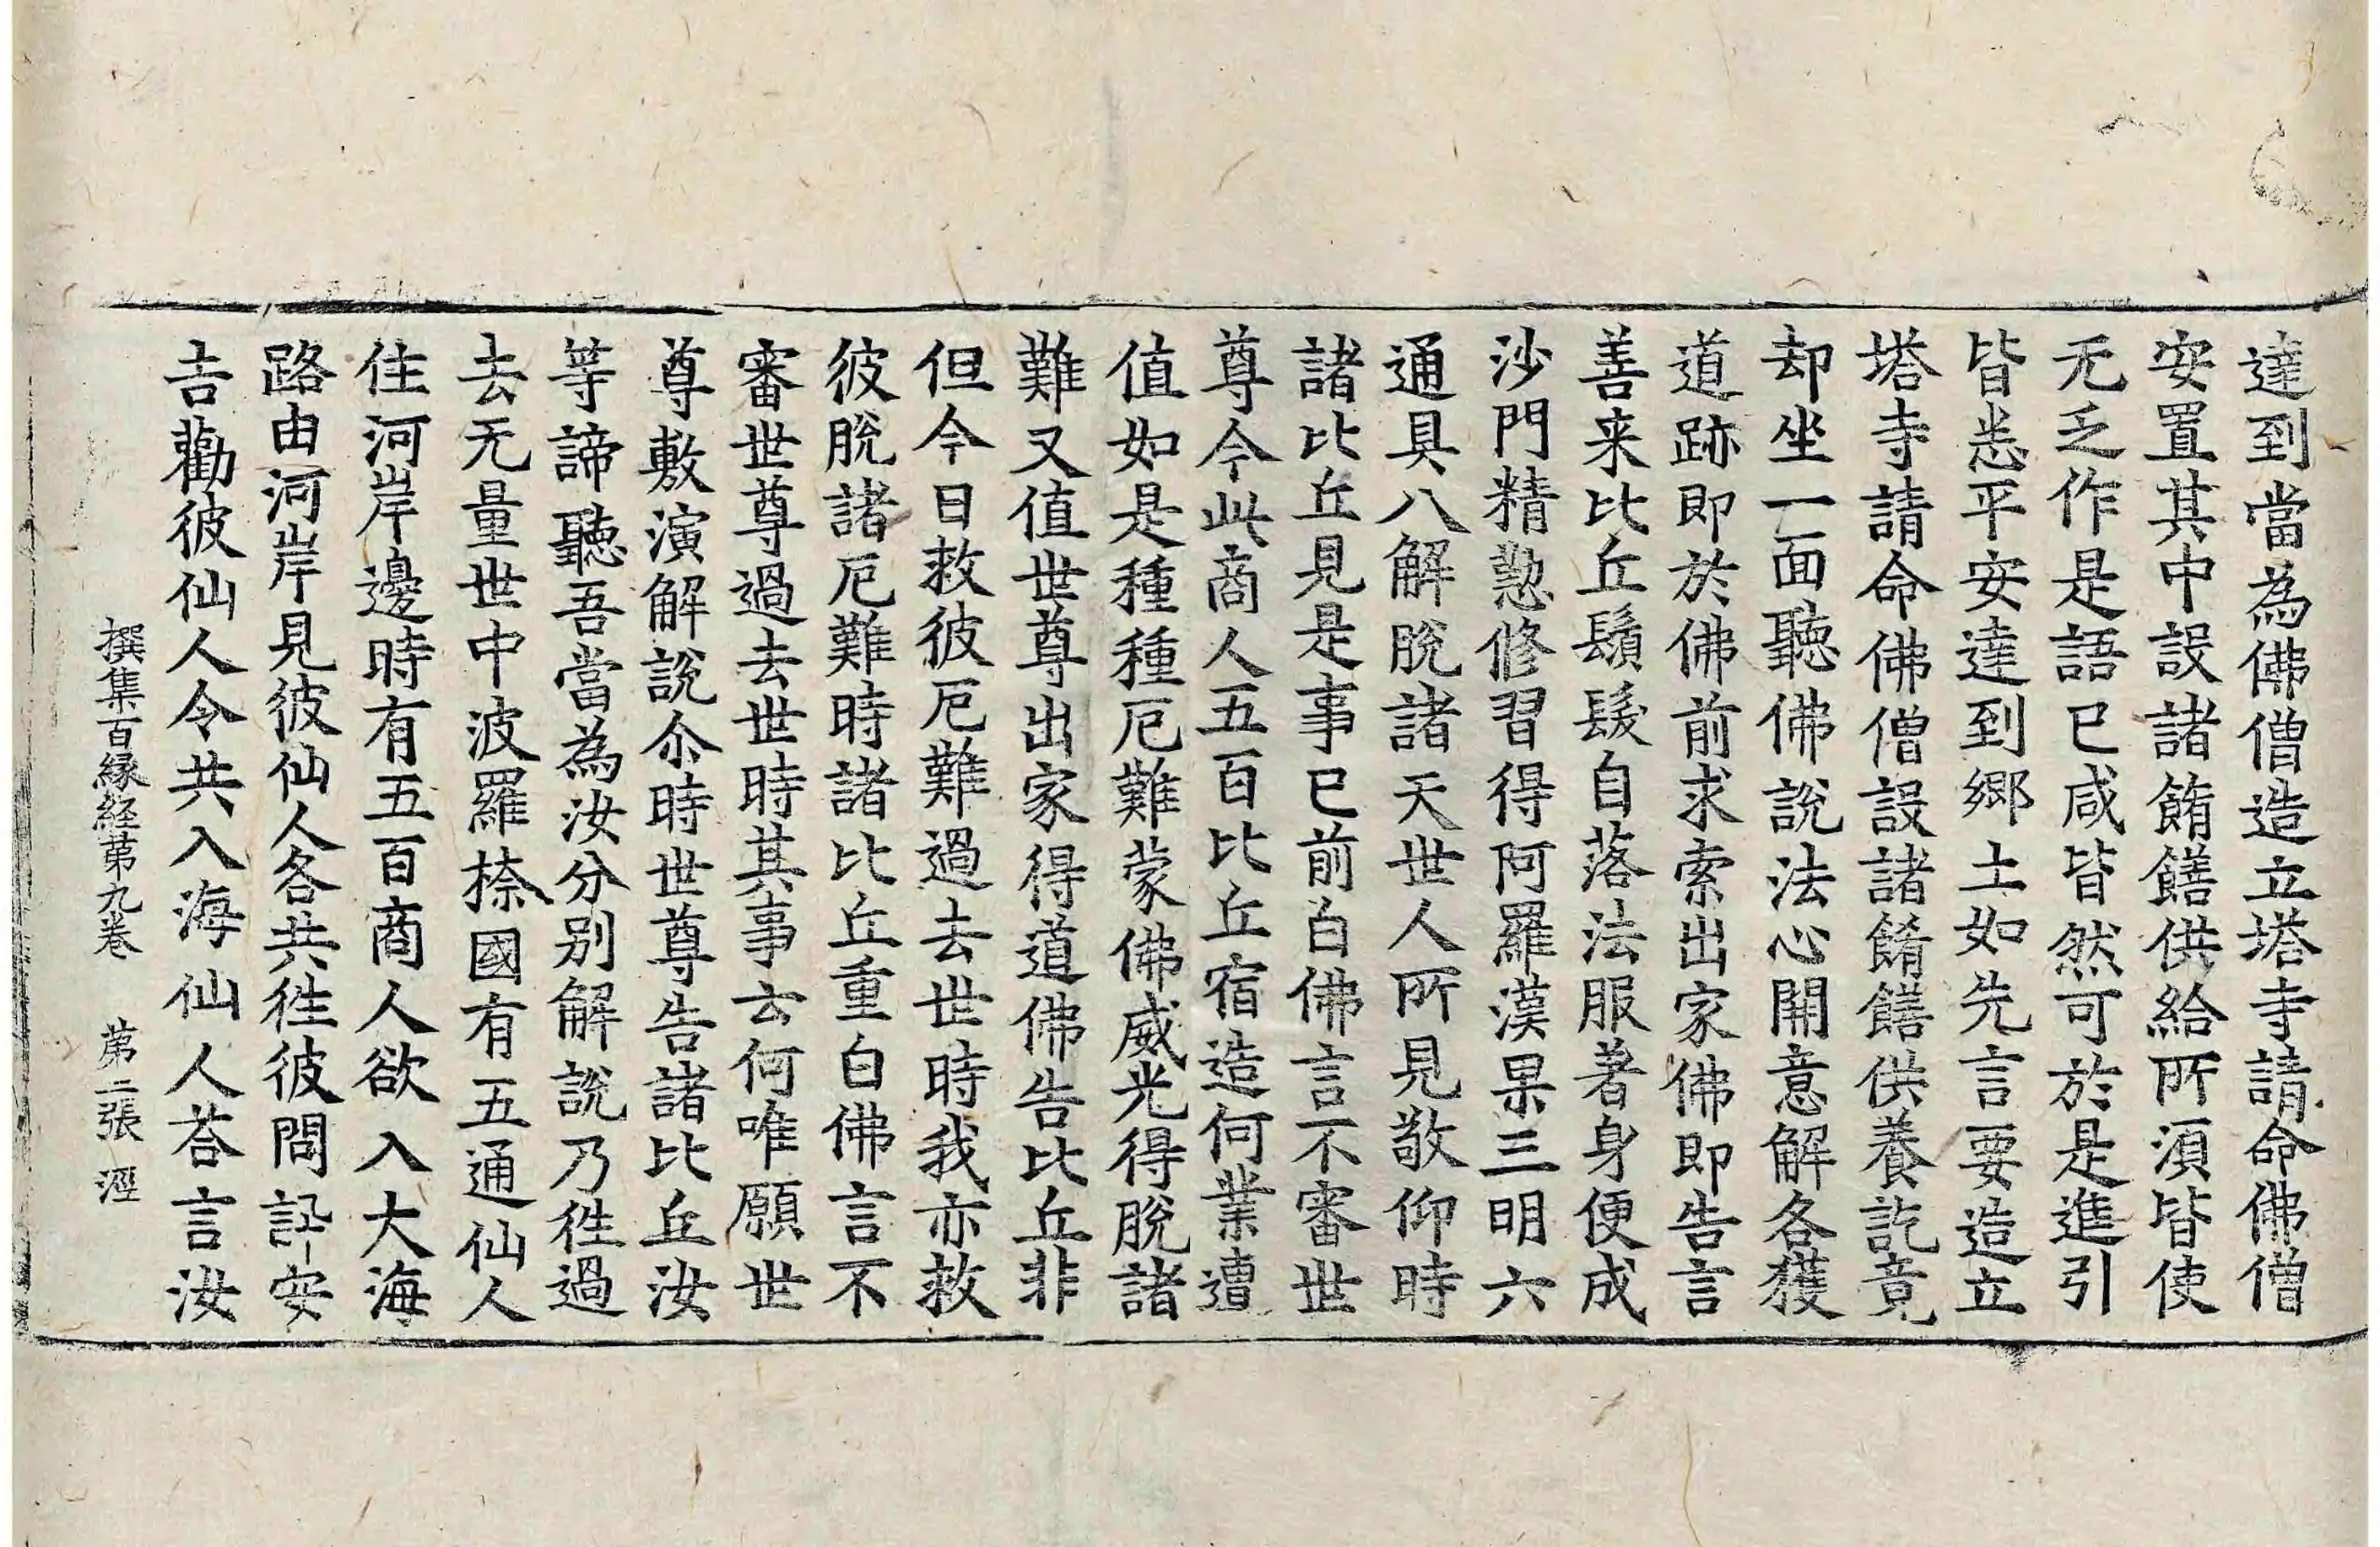 達到當為佛僧造立塔寺請命佛僧
安置其中設諸餚饍供給所須皆使
无乏作是語已咸皆然可於是進引
皆悉平安達到鄉土如先言要造立
塔寺請命佛僧設諸餚饍供養訖竟
却坐一面聽佛說法心開意解各獲
道跡即於佛前求索出家佛即告言
善来比丘鬚髮自落法服著身便成
沙門精懃修習得阿羅漢果三明六
通具八解脫諸天世人所見敬仰時
諸比丘見是事已前白佛言不審世
尊今此商人五百比丘宿造何業遭
值如是種種厄難蒙佛威光得脫諸
難又值世尊出家得道佛告比丘非
但今日救彼厄難過去世時我亦救
彼脫諸厄難時諸比丘重白佛言不
審世尊過去世時其事云何唯願世
尊敷演解說尒時世尊告諸比丘汝
等諦聽吾當為汝分別解說乃徃過
去无量世中波羅㮈國有五通仙人
住河岸邊時有五百商人欲入大海
路由河岸見彼仙人各共徃彼問訊安
吉勸彼仙人令共入海仙人荅言汝
撰集百緣経第九卷 第二張 溼